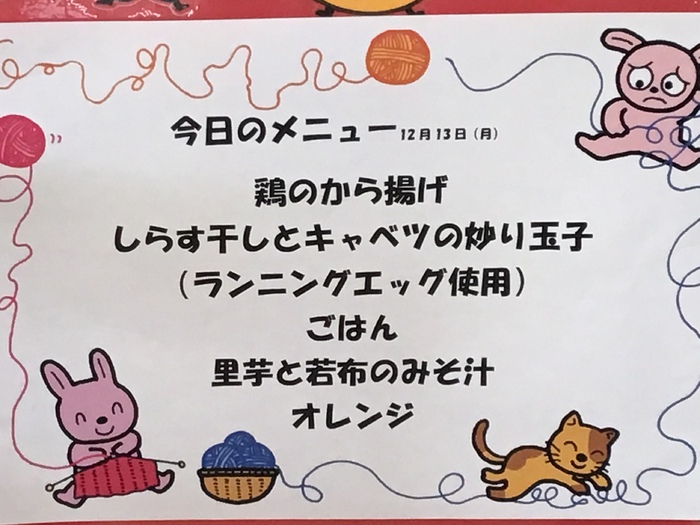 今日のメニュー12月13日(月)
鶏のから揚げ
しらす干しとキャベツの炒り玉子
(ランニングエッグ使用)
ごはん
里芋と若布のみそ汁
オレンジ